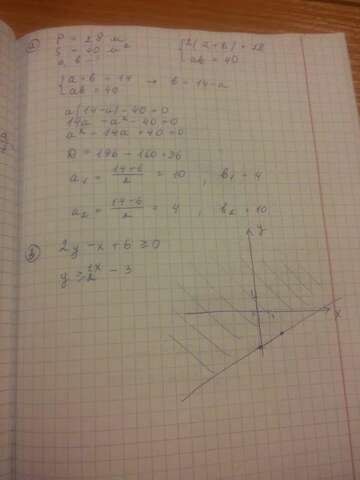 P = 28 м
S = 40 м²
a, b - ?
{ 2(a+b) = 28
ab = 40
{ a+b = 14 → b = 14-a
ab = 40
a(14-a) - 40 = 0
14a - a² - 40 = 0
a² - 14a + 40 = 0
D = 196 - 160 = 36
a₁ = (14+6)/2 = 10 , b₁ = 4
a₂ = (14-6)/2 = 4 , b₂ = 10
2y - x + 6 ≥ 0
y
x